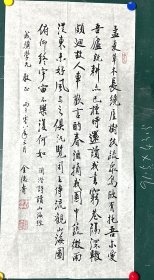 孟夏草木長繞屋樹扶疏眾鳥欣有托吾亦愛
吾廬既耕亦已種時還讀我書窮巷隔深轍
頗迴故人車歡言酌春酒摘我園中蔬微雨
從東來好風與之俱汎覽周王傳流觀山海圖
俯仰終宇宙不樂復何如 陶潛詩讀山海經
學兄教正